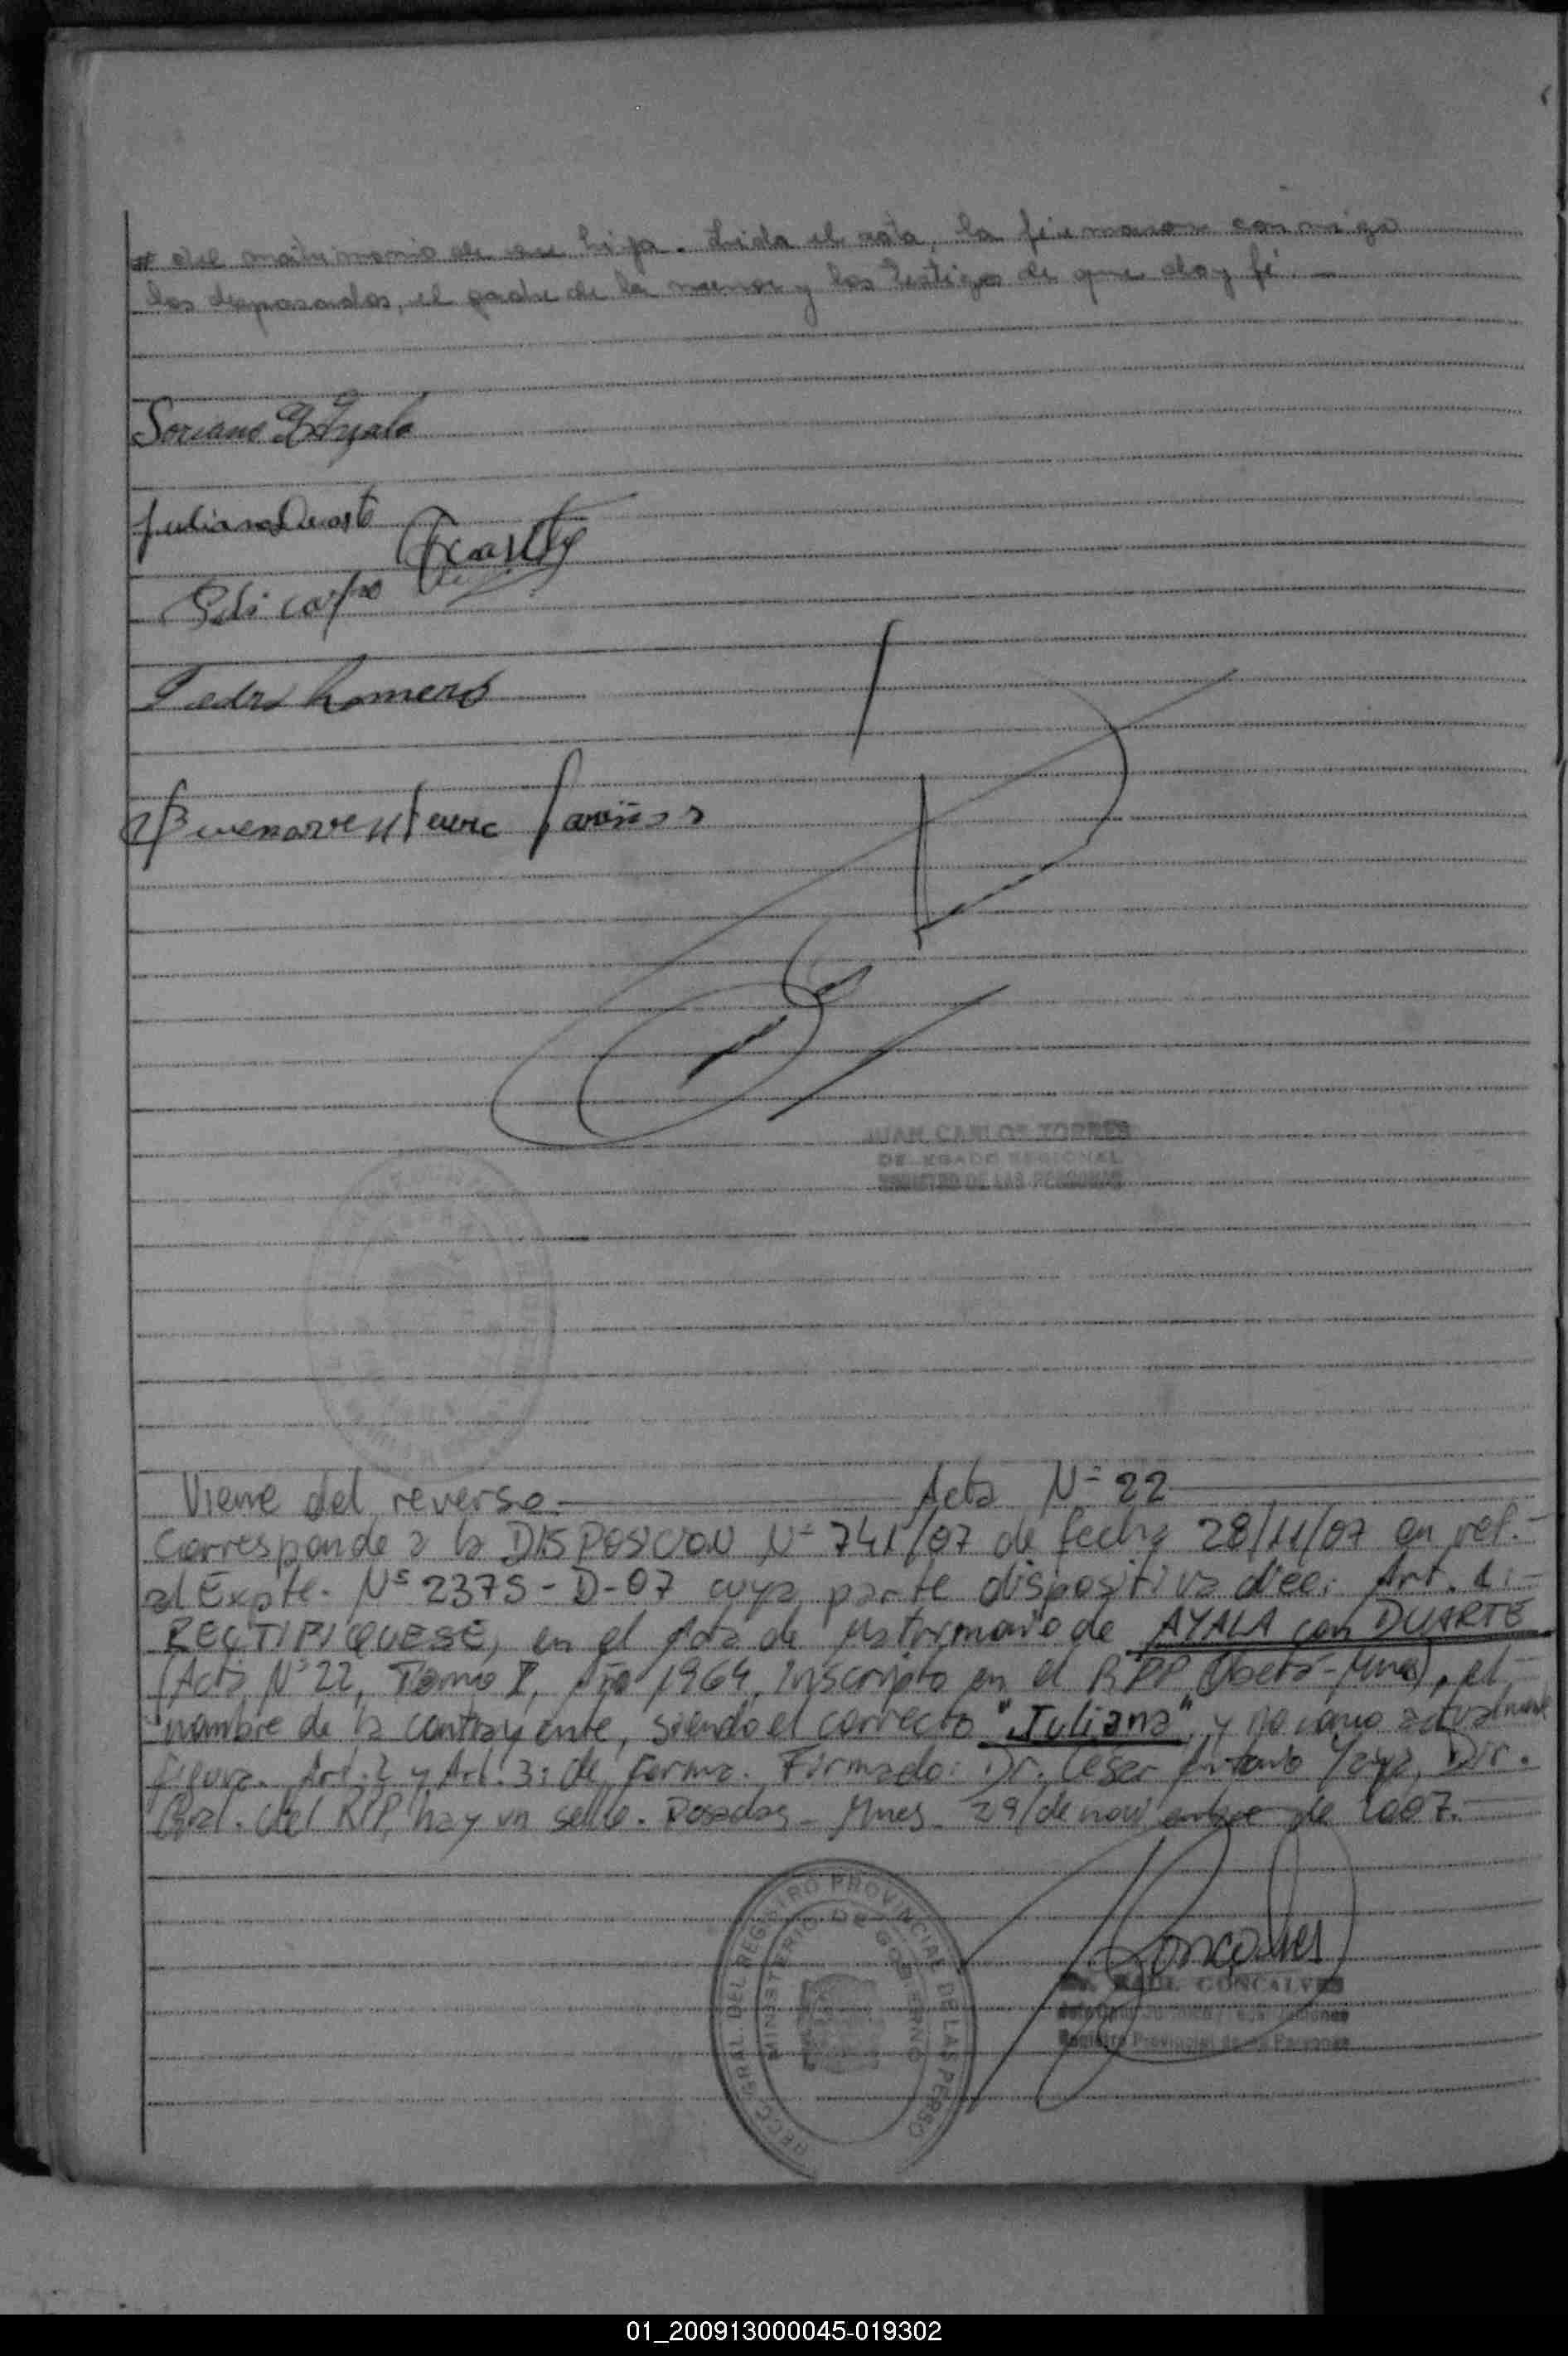 del matrimonio de su hija. Leida el acta, la firmaron conmigo
los desposados, el padre de la menor y los testigos de que doy fé.
Soriano Ayala
Juliana Duarte
Policarpo Duarte
Pedro Romero
Buenaventura
JUAN CARLOS TORRES
DELEGADO REGIONAL
REGISTRO DE LAS PERSONAS
Viene del reverso Acta Nº 22
Corresponde a la DISPOSICION Nº 741/07 de fecha 28/11/07 en ref.-
al Expte. Nº 2375-D-07 cuya parte dispositiva dice: Art. 1:-
RECTIFIQUESE, en el Acta de Matrimonio de AYALA con DUARTE
(Acta Nº 22, Tomo I, Año 1964, Inscripto en el RPP Oberá-Mnes), el
nombre de la contrayente, siendo el correcto "Juliana", y no como actualmente
figura. Art. 2 y Art. 3: de forma. Firmado: Dr. Cesar Antonio Dir.
Gral. del RPP, hay un sello. Posadas - Mnes. 29/de noviembre de 2007.
Goncalves
RAUL GONCALVES
Registro Provincial de las Personas
DIRECC. GRAL. DEL REGISTRO PROVINCIAL DE LAS PERSO
MINISTERIO DE GOBIERNO
01_200913000045-019302